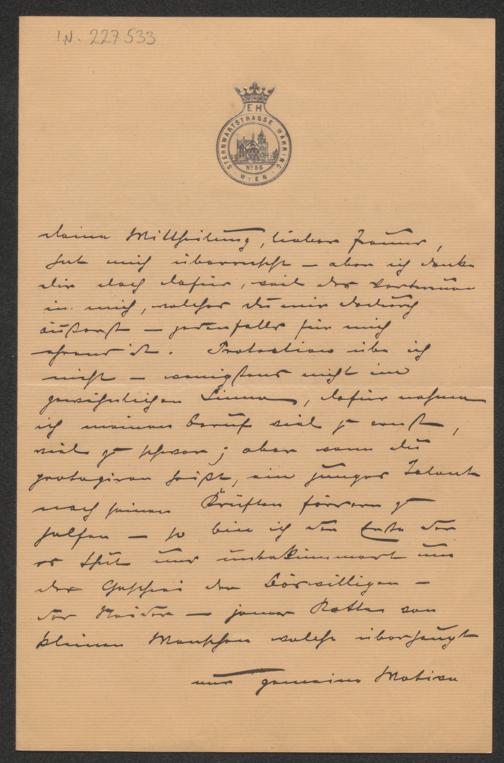 I.N. 227533
EH
STERNWARTSTRASSE WÄHRING
No 56
WIEN
Deine Mittheilung, lieber
hat mich überrascht – aber ich danke
dir doch dafür, weil das Vertrauen
in mich, welches du mir dadurch
äußerst – jedenfalls für mich
ehrend ist. Protection übe ich
nicht – wenigstens nicht im
gewöhnlichen Sinne, dafür nehme
ich meinen Beruf viel zu ernst,
viel zu schwer; aber wenn du
protegiren heißt, ein junges Talent
nach seinen Kräften fördern zu
helfen – so bin ich der Erste der
es thut und unbekümmert um
das Geschrei der Böswilligen –
der Neider – jener Rotte von
kleinen Menschen welche überzeugt
nur gemeine Motive